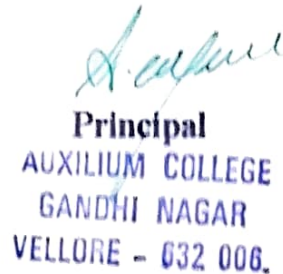 Principal
AUXILIUM COLLEGE
GANDHI NAGAR
VELLORE - 632 006.